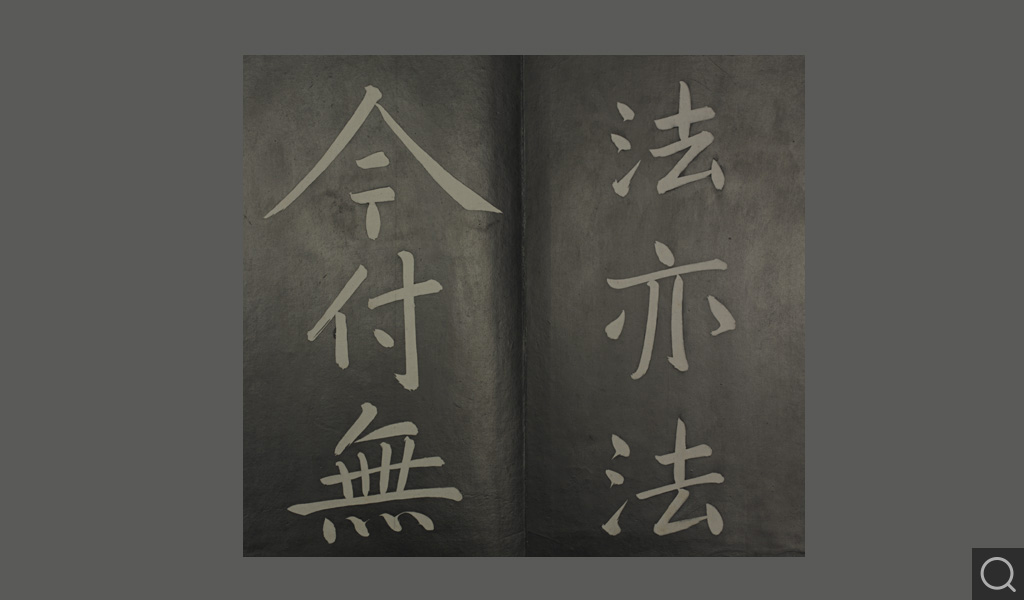 法亦法
今付無